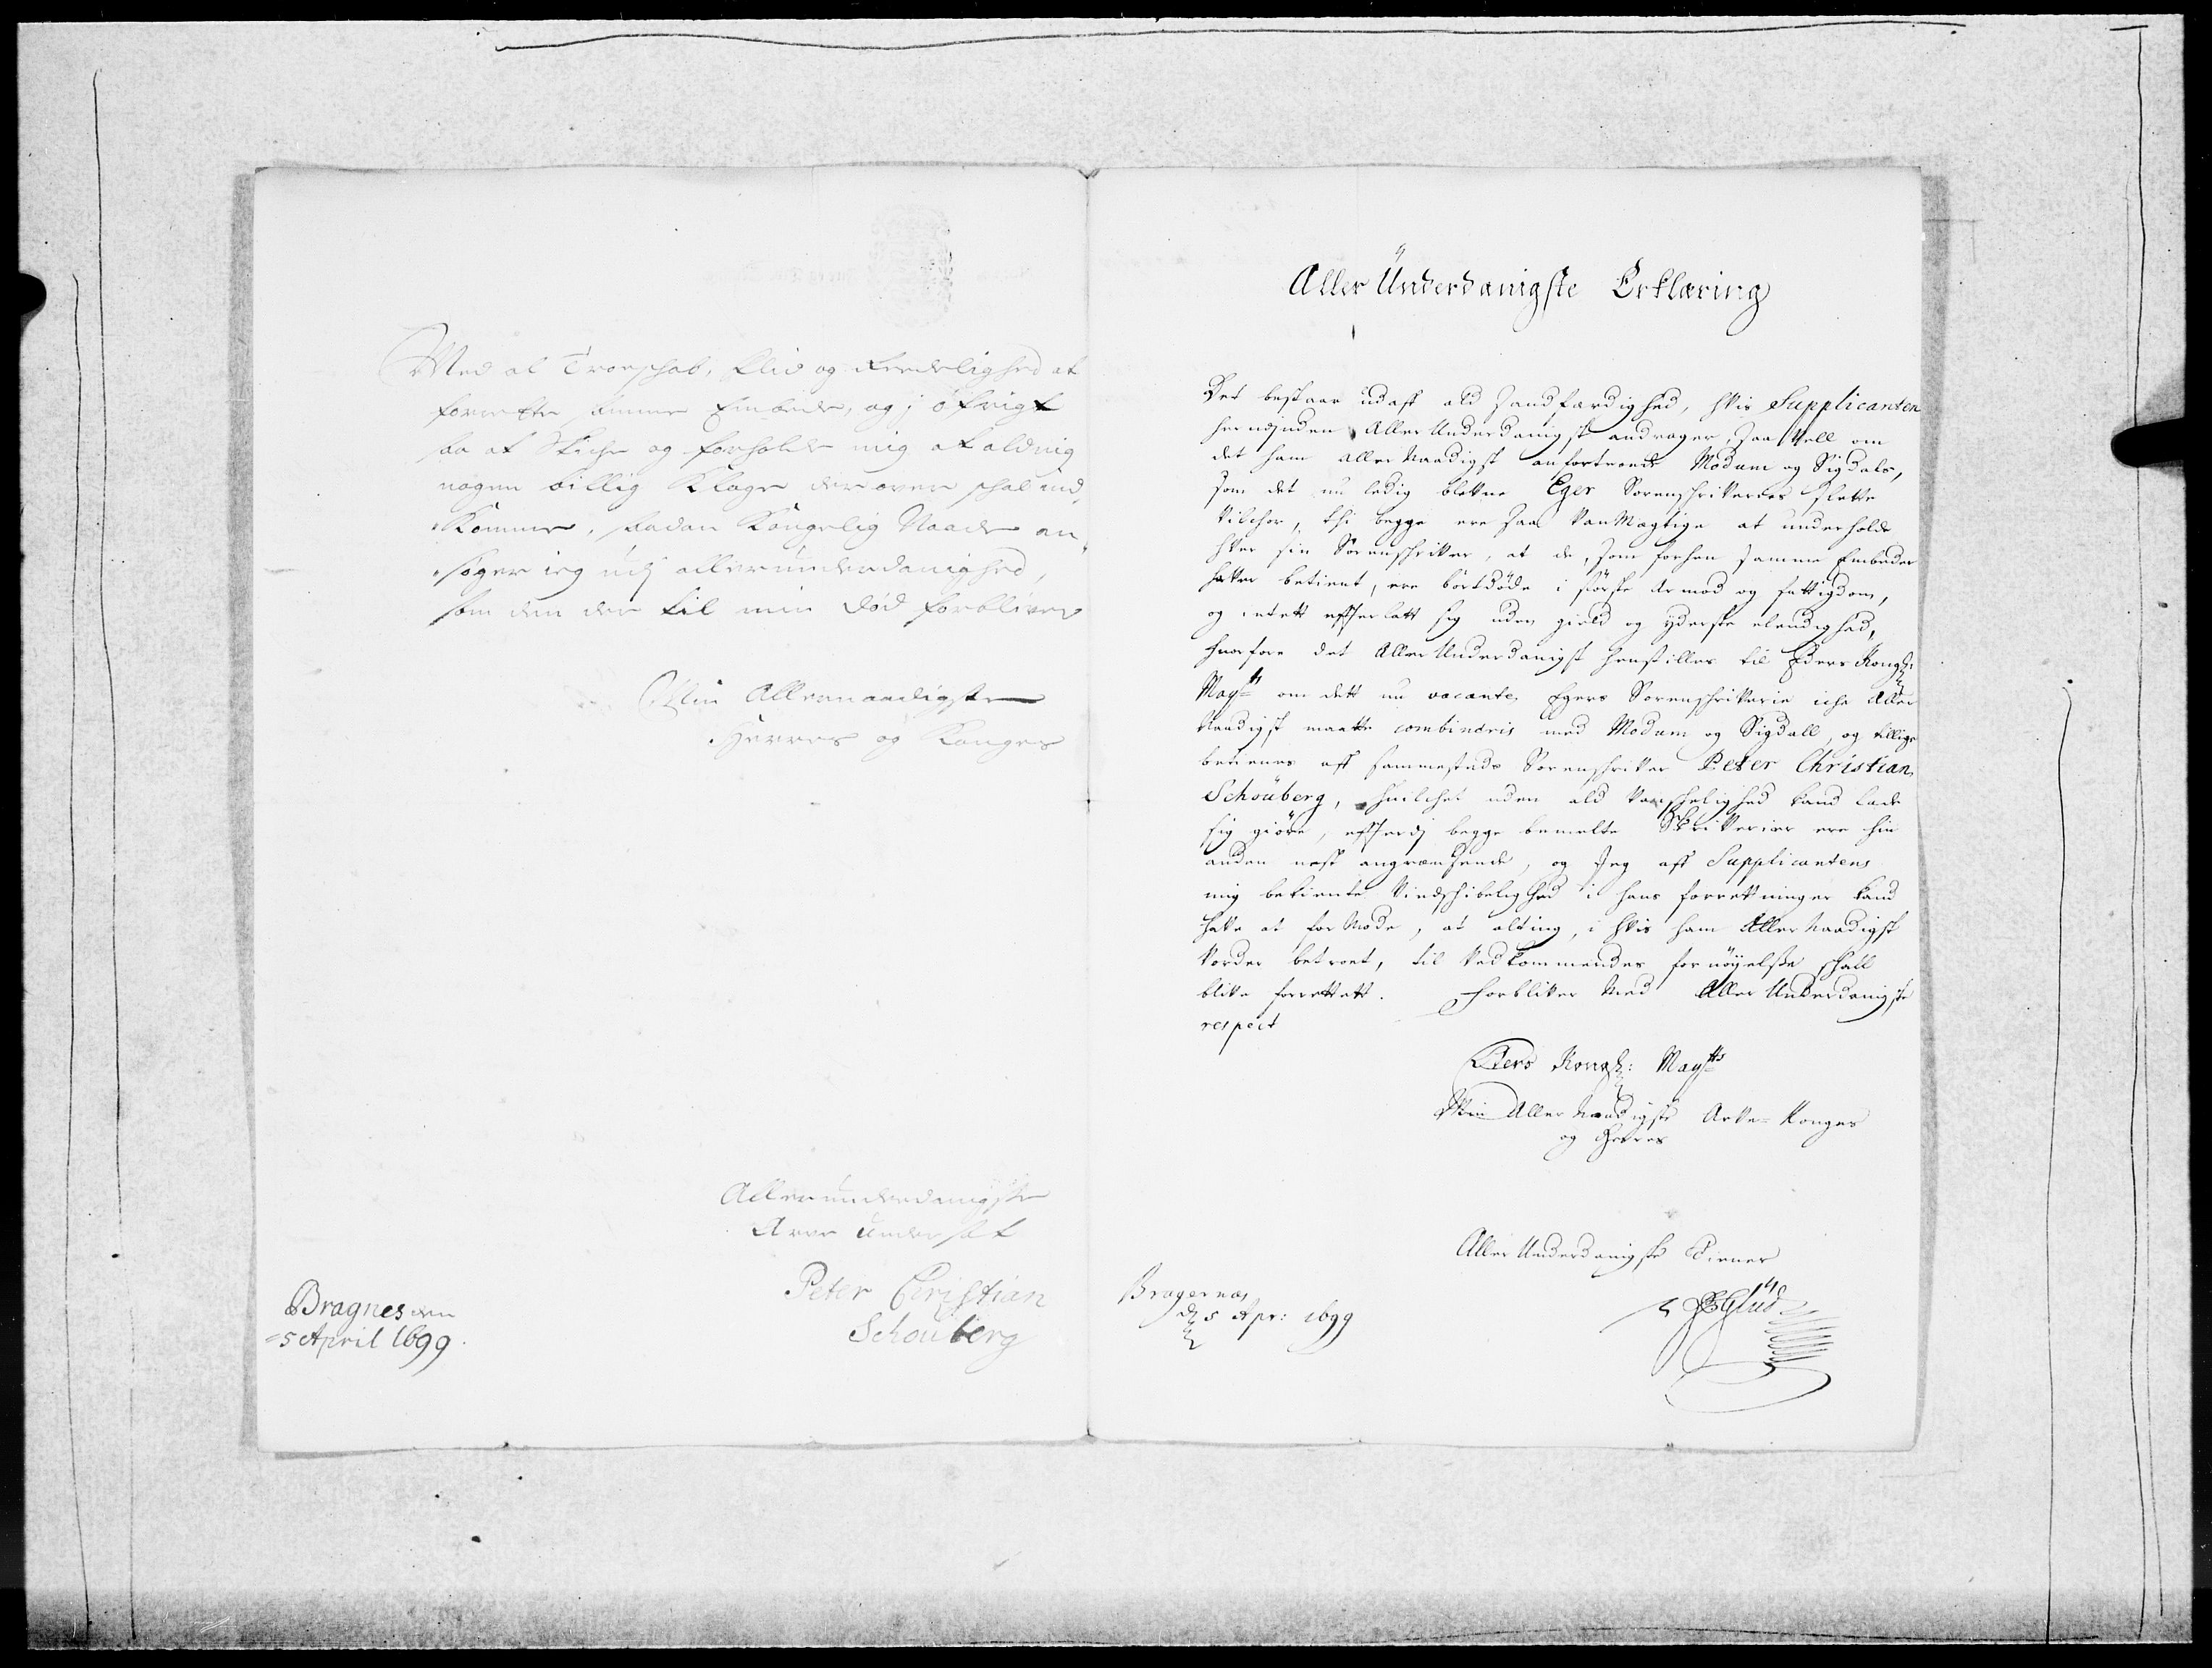 Med al Troeskab, flid og Reedelighed at
forrette samme Embede, og j öfrigt
saa at Skiche og forholde mig at aldrig
nogen billig Klage derover schal ind-
Komme. Sadan Kongelig Naade an-
söger ieg udj allerunderdanighed,
som den der til min död forbliver
Min Allernaadigste
Herres og Konges
Allerunderdanigste
Arve Undersat
Peter Christian
Schouberg
Bragnes den
5 April 1699.
Aller Underdanigste Erklæring
Det bestaar udaff ald Sandfærdighed, hvis Supplicanten
herudjnden Aller Underdanigst andrager, saa vell om
det ham aller Naadigst anfortroede Modum og Sigdals,
som det nu ledig blefne Eger Sorenschrifveries slette
vilchor, thi begge ere saa vanMægtige at underholde
hver sin Sörenschrifver, at de, som forhen samme Embeder
hafver betient, ere bortdöde i störste Armod og fattigdom,
og intett efterlatt sig uden gield og yderste elendighed,
hvorfore det Aller Underdanigst henstilles til Eders Kongl:
Maytt om dett nu vacante Egers Sorenschriverie iche Aller
Naadigst maatte combineris med Modum og Sigdall, og tillige
betienes aff sammesteds Sorenschrifver Peter Christian
Schouberg, hvilchet uden ald vanschelighed kand lade
sig giöre, efterdj begge bemelte Skrifverier ere hin
anden nest angrændsende, og Jeg aff Supplicantens
mig bekiente Vindschibelighed i hans forretninger kand
hafve at forMode, at alting, i hvis ham Aller Naadigst
vorder betroet, til vedkommendes fornöyelsse schall
blive forrettett. Forbliver Med Aller Underdanigste
respect
Eders Kongl: Maytts
Min Aller Naadigste Arfve-Konges
og Herres
Aller Underdanigste Tiener
Glud
Bragernæs
d 5 Apr: 1699